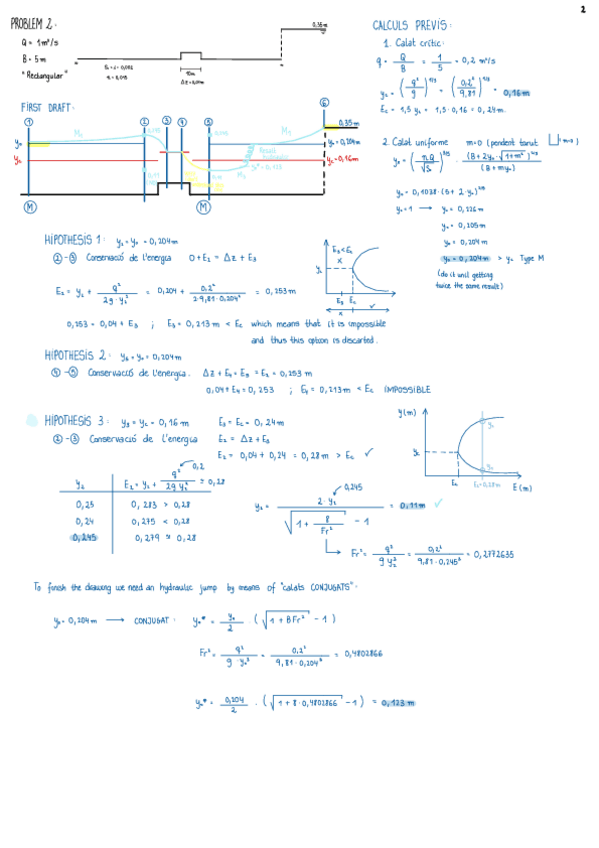 2
PROBLEM 2:
Q = 1m³/s
B = 5m
"Rectangular"
10m
0,35m
FIRST DRAFT:
1 2 3 4 5 6
M
M
0,35m
yₙ = 0,204m
yc = 0,16m
CALCULS PREVIS:
1. Calat crític:
q = Q/B = 1/5 = 0,2 m²/s
yc = (q²/g)^1/3 = (0,2²/9,81)^1/3 = 0,16m
Ec = 1,5 yc = 1,5·0,16 = 0,24m.
2. Calat uniforme m=0 (pendent tanut m=0)
yₙ = (nQ/√S₀)^3/5 · (B+2yₙ·√1+m²)^2/5 / (B+myₙ)
yₙ = 0,1038·(5+2·yₙ)^2/5
yₙ = 1 → yₙ = 0,226m
yₙ = 0,205m
yₙ = 0,204m
yₙ = 0,204m > yc Type M
(do it until getting
twice the same result)
HIPOTHESIS 1: y₂ = yₙ = 0,204m
②-③ Conservació de l'energia 0+E₂ = Δz + E₃
E₂ = y₂ + q²/2g·y₂² = 0,204 + 0,2²/2·9,81·0,204² = 0,253m
E₃<Ec
yc
E₃ Ec
0,253 = 0,04 + E₃ ; E₃ = 0,213m < Ec which means that it is impossible
and thus this option is discarted.
HIPOTHESIS 2: y₅ = yₙ = 0,204m
④-⑤ Conservació de l'energia. Δz + E₄ = E₅ = E₂ = 0,253m
0,04+E₄ = 0,253 ; E₄ = 0,213m < Ec IMPOSSIBLE
HIPOTHESIS 3: y₃ = yc = 0,16m E₃ = Ec = 0,24m
②-③ Conservació de l'energia E₂ = Δz + E₃
E₂ = 0,04 + 0,24 = 0,28m > Ec ✓
y(m)
yc
Ec
E₂=0,28m
E(m)
0,2
y₂ E₂ = y₂ + q²/2g y₂² ≈ 0,28
0,25 0,283 > 0,28
0,24 0,275 < 0,28
0,245 0,279 ≈ 0,28
0,245
y₅ = 2·y₂ / √1 + 8/Fr² − 1 = 0,11m ✓
Fr² = q²/g y₂³ = 0,2²/9,81·0,245³ = 0,2772635
To finish the drawing we need an hydraulic jump by means of "calats CONJUGATS":
yₙ = 0,204m → CONJUGAT: yₙ* = yₙ/2 · (√1+8Fr² − 1)
Fr² = q²/g·yₙ³ = 0,2²/9,81·0,204³ = 0,4802866
yₙ* = 0,204/2 · (√1+8·0,4802866 −1) = 0,123m